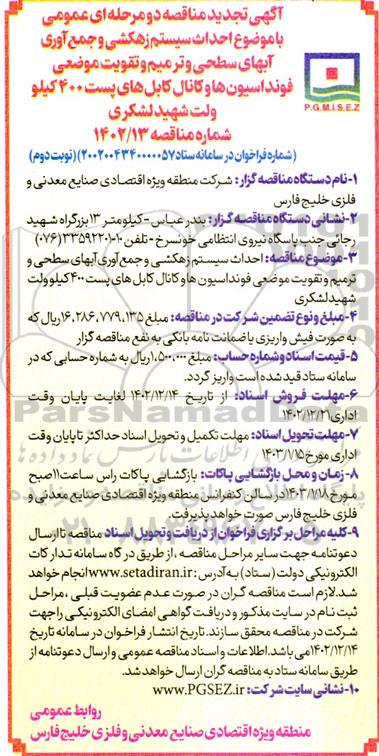 آگهی تجدید مناقصه دو مرحله ای عمومی
با موضوع احداث سیستم زهکشی و جمع آوری
آبهای سطحی و ترمیم و تقویت موضعی
فونداسیون ها و کانال کابل های پست ۴۰۰ کیلو
ولت شهید لشکری
شماره مناقصه ۱۴۰۲/۱۳
P.G.M.I.S.E.Z
(شماره فراخوان در سامانه ستاد ۲۰۰۲۰۰۴۳۴۰۰۰۰۰۵۷) (نوبت دوم)
۱-نام دستگاه مناقصه گزار: شرکت منطقه ویژه اقتصادی صنایع معدنی و
فلزی خلیج فارس
۲-نشانی دستگاه مناقصه گزار: بندر عباس - کیلومتر ۱۳ بزرگراه شهید
رجائی جنب پاسگاه نیروی انتظامی خونسرخ - تلفن ۱۰-۳۳۵۹۲۲۰۱ (۰۷۶)
۳-موضوع مناقصه: احداث سیستم زهکشی و جمع آوری آبهای سطحی و
ترمیم و تقویت موضعی فونداسیون ها و کانال کابل های پست ۴۰۰ کیلو ولت
شهید لشکری
۴-مبلغ و نوع تضمین شرکت در مناقصه: مبلغ ۱۶,۲۸۶,۷۷۹,۱۳۵ ریال که
به صورت فیش واریزی یا ضمانت نامه بانکی به نفع مناقصه گزار
۵-قیمت اسناد و شماره حساب: مبلغ ۱,۵۰۰,۰۰۰ ریال به شماره حسابی که در
سامانه ستاد قید شده است واریز گردد.
۶-مهلت فروش اسناد: از تاریخ ۱۴۰۲/۱۲/۱۴ لغایت پایان وقت
اداری ۱۴۰۲/۱۲/۲۱
۷-مهلت تحویل اسناد: مهلت تکمیل و تحویل اسناد حداکثر تا پایان وقت
اداری مورخ ۱۴۰۳/۱/۱۵
۸-زمان و محل بازگشایی پاکات: بازگشایی پاکات راس ساعت ۱۱ صبح
مورخ ۱۴۰۳/۱/۱۸ در سالن کنفرانس منطقه ویژه اقتصادی صنایع معدنی و
فلزی خلیج فارس صورت خواهد پذیرفت.
۹-کلیه مراحل برگزاری فراخوان از دریافت و تحویل اسناد مناقصه تا ارسال
دعوتنامه جهت سایر مراحل مناقصه، از طریق درگاه سامانه تدارکات
الکترونیکی دولت (ستاد) به آدرس: www.setadiran.ir انجام خواهد
شد. لازم است مناقصه گران در صورت عدم عضویت قبلی، مراحل
ثبت نام در سایت مذکور و دریافت گواهی امضای الکترونیکی را جهت
شرکت در مناقصه محقق سازند. تاریخ انتشار فراخوان در سامانه تاریخ
۱۴۰۲/۱۲/۱۴ می باشد. اطلاعات و اسناد مناقصه عمومی و ارسال دعوتنامه از
طریق سامانه ستاد به مناقصه گران ارسال خواهد شد.
۱۰-نشانی سایت شرکت: www.PGSEZ.ir
روابط عمومی
منطقه ویژه اقتصادی صنایع معدنی و فلزی خلیج فارس